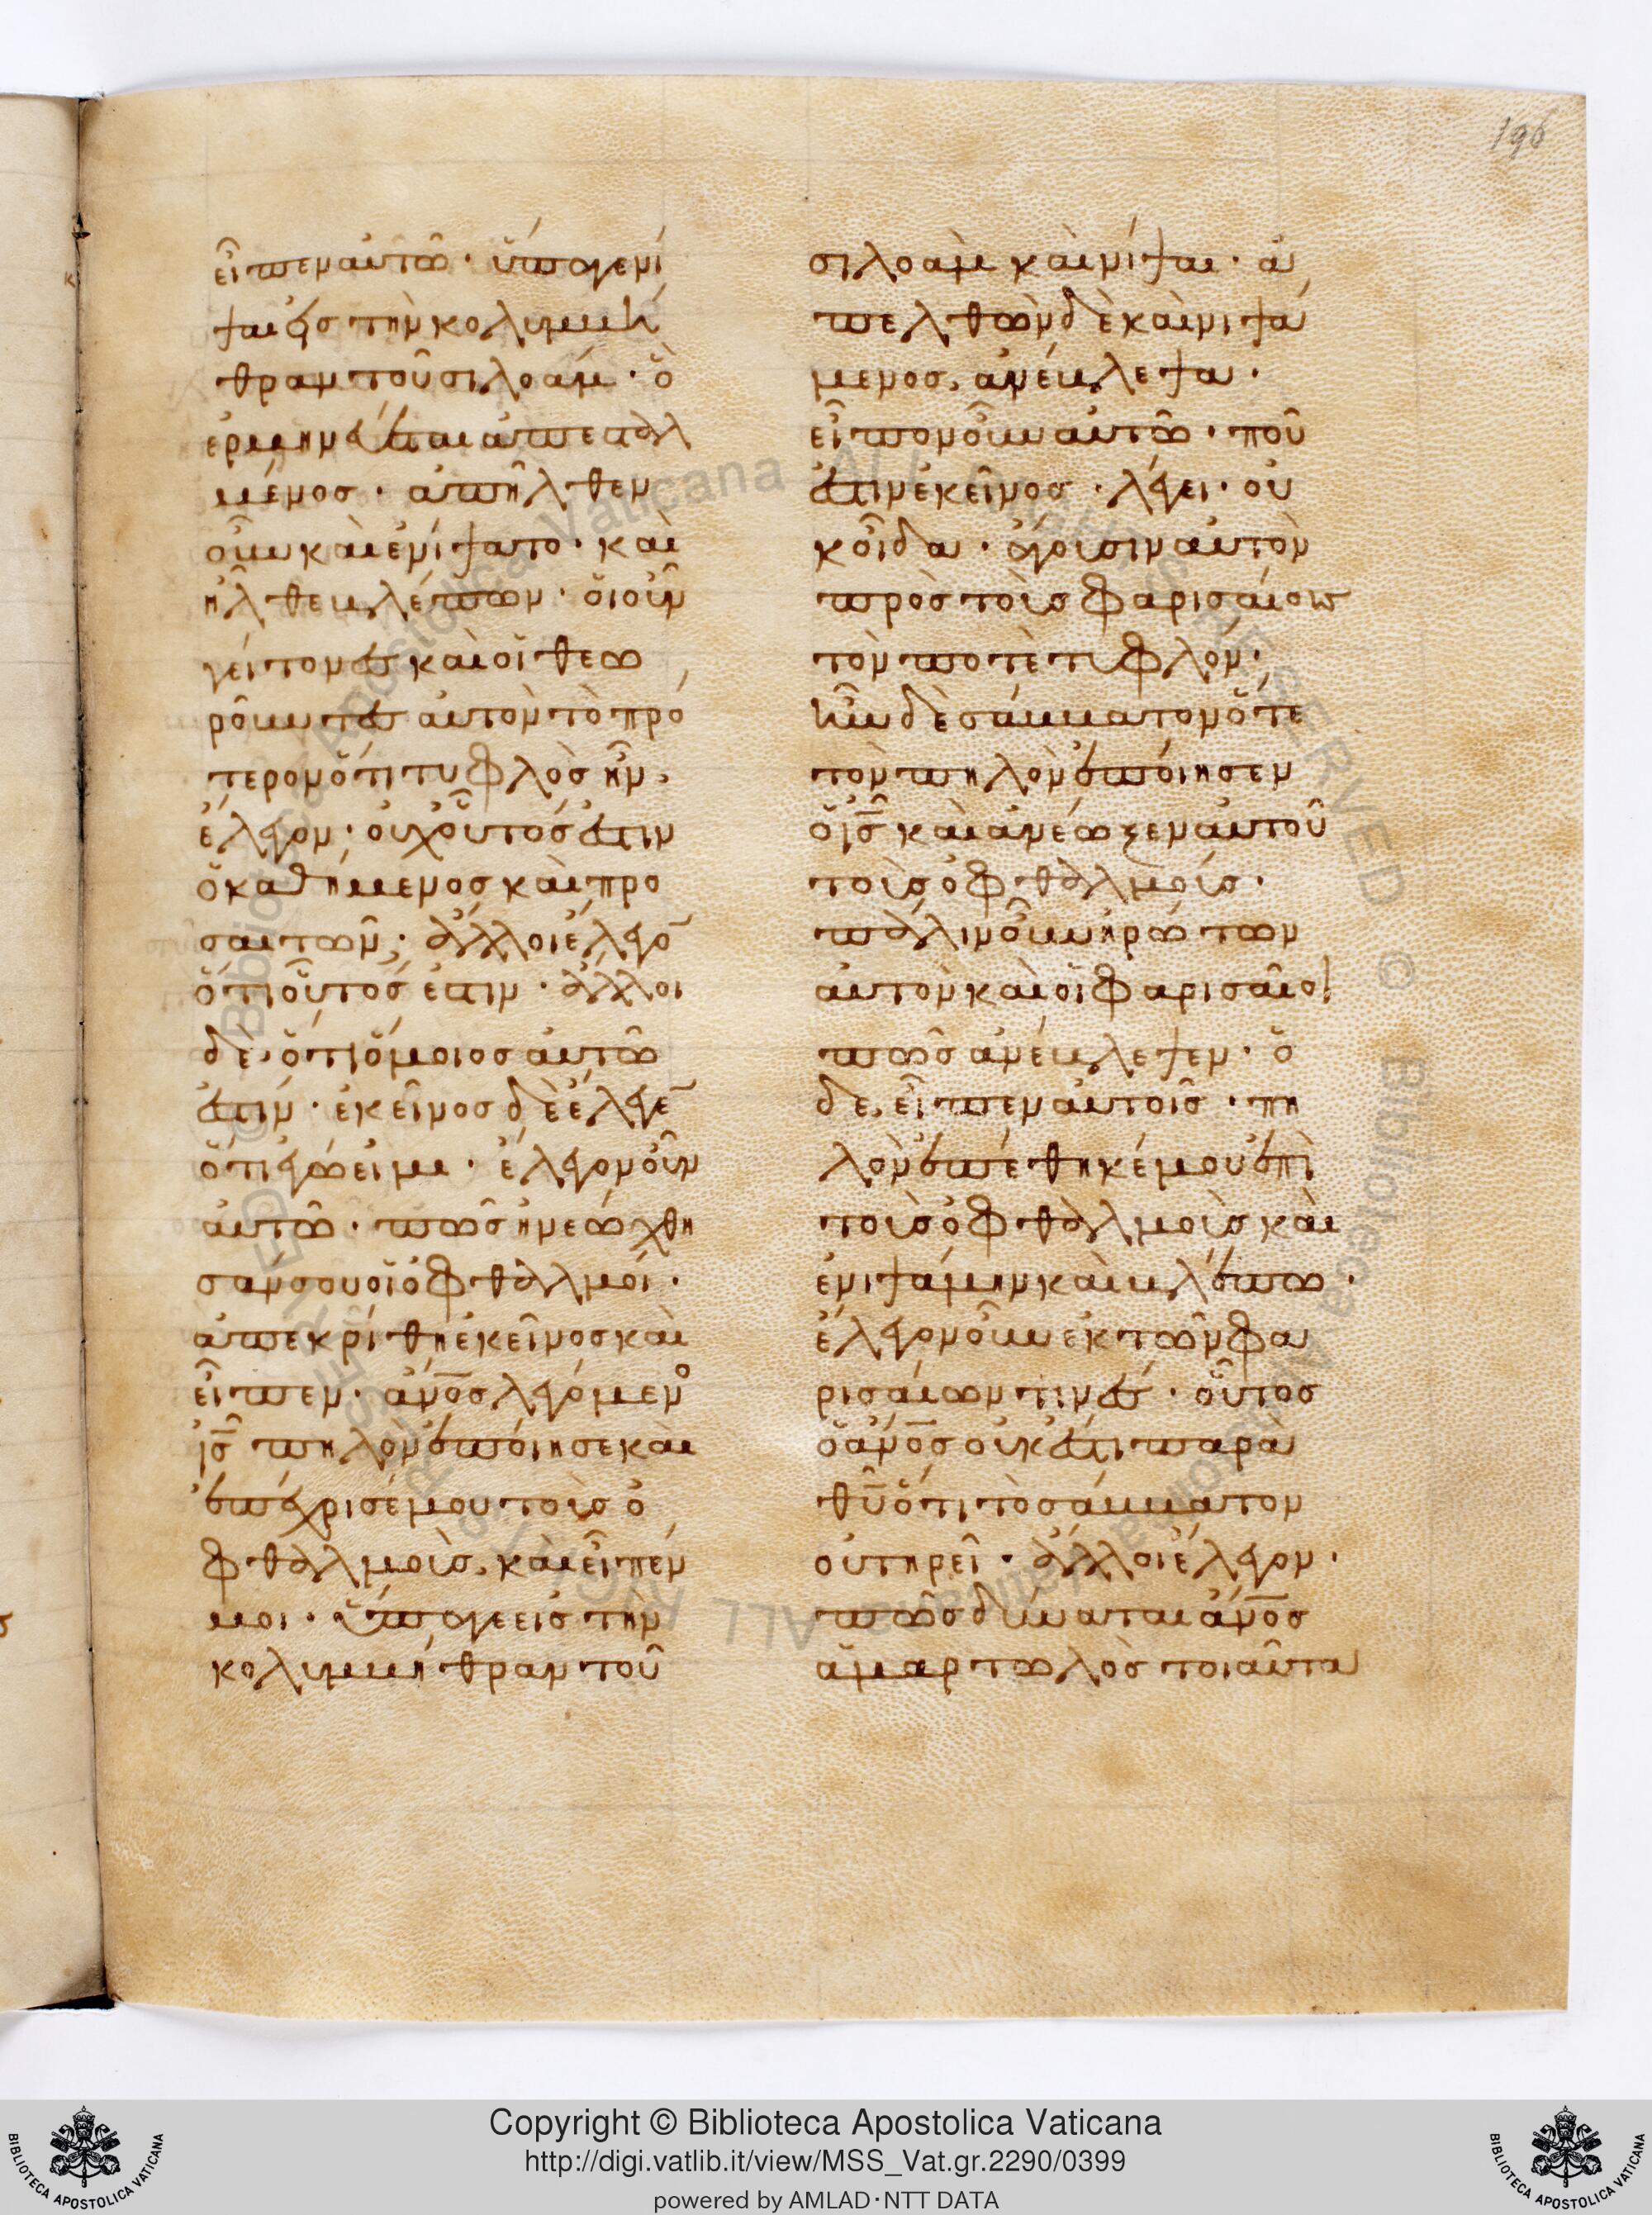 196
εἶπεν αὐτῶ · ὕπαγε νί
ψαι εἰς τὴν κολυμβή
θραν τοῦ σιλοάμ · ὃ
ἑρμηνεύεται ἀπεσταλ
μένος · ἀπῆλθεν
οὖν καὶ ἐνίψατο · καὶ
ἦλθε βλέπων · ὁι οὖν
γείτονες καὶ οἱ θεω
ροῦντες αὐτὸν τὸ πρό
τερον ὅτι τυφλὸς ἦν,
ἔλεγον · οὐχ οὗτός ἐστιν
ὁ καθήμενος καὶ προ
σαιτῶν; ἄλλοι ἔλεγο̄
ὅτι οὗτός ἐστιν · ἄλλοι
δὲ, ὅτι ὅμοιος αὐτῶ
ἐστίν · ἐκεῖνος δὲ ἔλεγε̄
ὅτι ἐγώ εἰμι · ἔλεγον οὖν
αὐτῶ · πῶς ἠνεώχθη
σάν σου οἱ ὀφθαλμοί ·
ἀπεκρίθη ἐκεῖνος καὶ
εἶπεν · ἄν̅ο̅ς λεγόμενος
ι̅ς̅ πηλὸν ἐποίησε καὶ
ἐπέχρισέ μου τοὺς ὀ
φθαλμοὺς, καὶ εἶπέν
μοι · ὕπαγε εἰς τὴν
κολυμβήθραν τοῦ
σιλοὰμ καὶ νίψαι · ἀ
πελθὼν δὲ καὶ νιψά
μενος, ἀνέβλεψα ·
εἶπον οὖν αὐτῶ · ποῦ
ἐστιν ἐκεῖνος · λέγει · οὐ
κ οἶδα · ἄγουσιν αὐτὸν
πρὸς τοὺς φαρισαίους
τὸν ποτὲ τυφλόν ·
ἦν δὲ σάββατον ὅτε
τὸν πηλὸν ἐποίησεν
ὁ ι̅ς̅ καὶ ἀνέωξεν αὐτοῦ
τοὺς ὀφθαλμούς ·
πάλιν οὖν ἠρώτων
αὐτὸν καὶ οἱ φαρισαῖοι
πῶς ἀνέβλεψεν · ὁ
δε, εἶπεν αὐτοῖς · πη
λὸν ἐπέθηκέ μου ἐπὶ
τοὺς ὀφθαλμοὺς καὶ
ἐνιψάμην καὶ βλέπω ·
ἔλεγον οὖν ἐκ τῶν φα
ρισαίων τινές · οὗτος
ὁ ἄν̅ο̅ς οὐκ ἔστι παρὰ
θ̅υ̅ ὅτι τὸ σάββατον
οὐ τηρεῖ · ἄλλοι ἔλεγον ·
πῶς δύναται ἄν̅ο̅ς
ἁμαρτωλὸς τοιαῦτα
Copyright © Biblioteca Apostolica Vaticana
http://digi.vatlib.it/view/MSS_Vat.gr.2290/0399
powered by AMLAD·NTT DATA
BIBLIOTECA APOSTOLICA VATICANA
BIBLIOTECA APOSTOLICA VATICANA